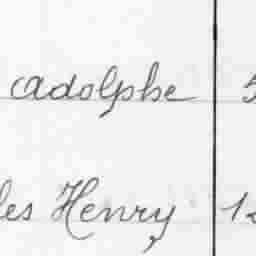 adolphe 5
les Henry 12